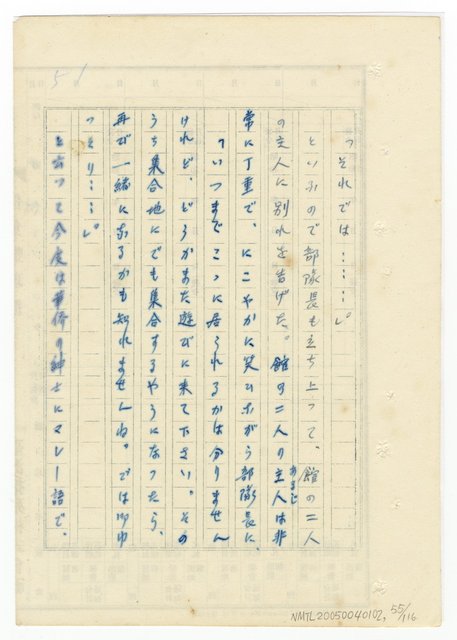 51
「それでは……」
といふので部隊長も立ち上つて、館の二人
の主人に別れを告げた。館の二人の主人は非
あるじ
常に丁重で、にこやかに笑ひながら部隊長に、
「いつまでこゝに居られるかは分りません
けれど、どうかまた遊びに来て下さい。その
うち集合地にでも集合するやうになつたら、
再び一緒になるかも知れませんね。では御ゆ
つくり……」
と云つて今度は華僑の紳士にマレー語で、
NMTL20050040102, 55/116